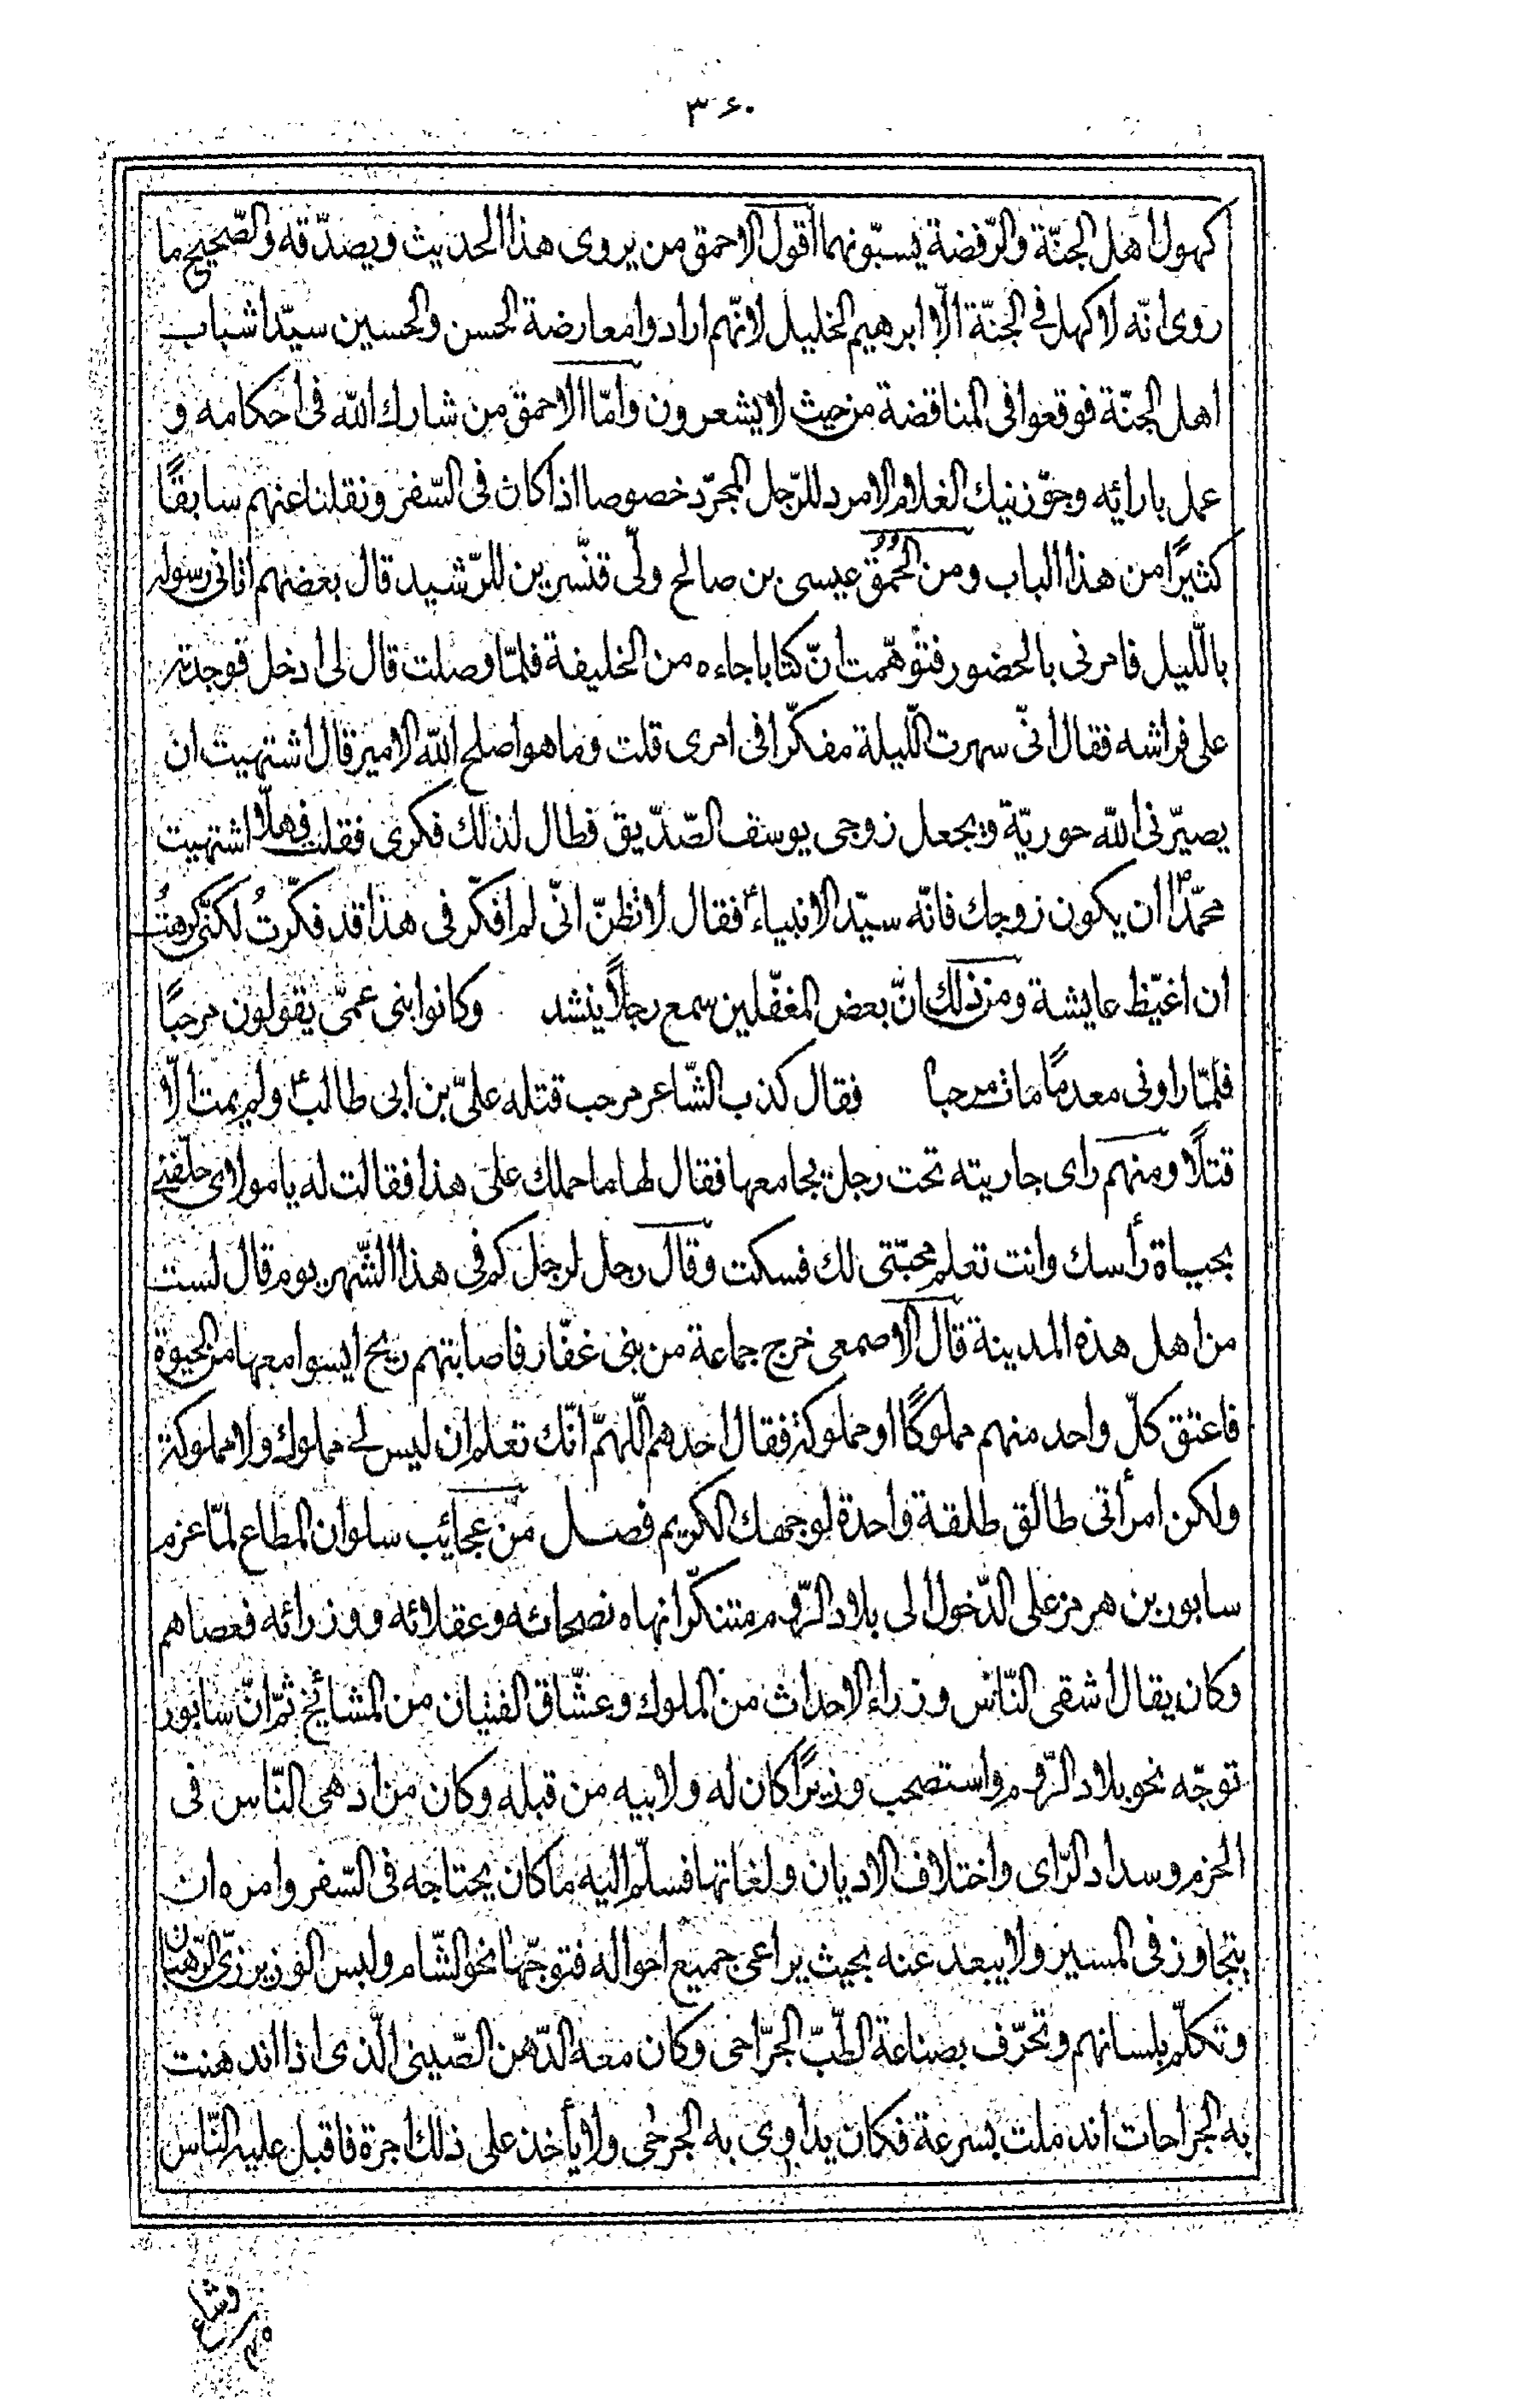 ۳۶۰
كهول اهل الجنّة والرّفضة يسبّونهما اقول الاحمق من يروى هذا الحديث ويصدّقه والصّحيح ما
روى انّه لا كهل فى الجنّة الّا ابرهيم الخليل لانّهم ارادوا معارضة الحسن والحسين سيّدا شباب
اهل الجنّة فوقعوا فى المناقضة من حيث لا يشعرون وامّا الاحمق من شارك الله فى احكامه و
عمل بارائه وجوّز نيك الغلام الامرد للرّجل المجرّد خصوصا اذا كان فى السّفر ونقلنا عنهم سابقًا
كثيرًا من هذا الباب ومن الحمق عيسى بن صالح ولّى قنّسرين للرّشيد قال بعضهم اتانى رسوله
باللّيل فامرنى بالحضور فتوهّمت انّ كتابا جاءه من الخليفة فلمّا وصلت قال لى ادخل فوجدته
على فراشه فقال انّى سهرت اللّيلة مفكّرا فى امرى قلت وما هو اصلح الله الامير قال اشتهيت ان
يصيّرنى الله حوريّة ويجعل زوجى يوسف الصّدّيق فطال لذلك فكرى فقلت فهلّا اشتهيت
محمّدًا ان يكون زوجك فانّه سيّد الانبياء فقال لا تظنّ انّى لم افكّر فى هذا قد فكّرتُ لكنّى كرهتُ
ان اغيّظ عايشة ومن ذلك انّ بعض المغفّلين سمع رجلًا ينشد وكانوا بنى عمّى يقولون مرحبًا
فلمّا راونى معدمًا مات مرحبا فقال كذب الشّاعر مرحب قتله علىّ بن ابى طالب ع ولم يمت الّا
قتلًا ومنهم راى جاريته تحت رجل يجامعها فقال لها ما حملك على هذا فقالت له يا مولاى حلّفنى
بحياة رأسك وانت تعلم محبّتى لك فسكت وقال رجل لرجل كم فى هذا الشّهر يوم قال لست
من اهل هذه المدينة قال الاصمعى خرج جماعة من بنى غفّار فاصابتهم ريح ايسوا معها من الحيوة
فاعتق كلّ واحد منهم مملوكًا او مملوكة فقال احدهم اللّهمّ انّك تعلم ان ليس لى مملوك ولا مملوكة
ولكن امرأتى طالق طلقة واحدة لوجهك الكريم فصل من عجائب سلوان المطاع لمّا عزم
سابور بن هرمز على الدّخول الى بلاد الرّوم متنكّرا نهاه نصحائه وعقلائه ووزرائه فعصاهم
وكان يقال اشقى النّاس وزراء الاحداث من الملوك وعشّاق الفتيان من المشائخ ثمّ انّ سابور
توجّه نحو بلاد الرّوم واستصحب وزيرًا كان له ولابيه من قبله وكان من ادهى النّاس فى
الحزم وسداد الرّاى واختلاف الاديان ولغاتها فسلّم اليه ما كان يحتاجه فى السّفر وامره ان
يتجاوز فى المسير ولا يبعد عنه بحيث يراعى جميع احواله فتوجّها نحو الشّام ولبس الوزير زىّ الرّهبان
وتكلّم بلسانهم وتحرّف بصناعة الطّبّ الجرّاحى وكان معه الدّهن الصّينى الّذى اذا اندهنت
به الجراحات اندملت بسرعة فكان يداوى به الجرحى ولا يأخذ على ذلك اجرة فاقبل عليه النّاس